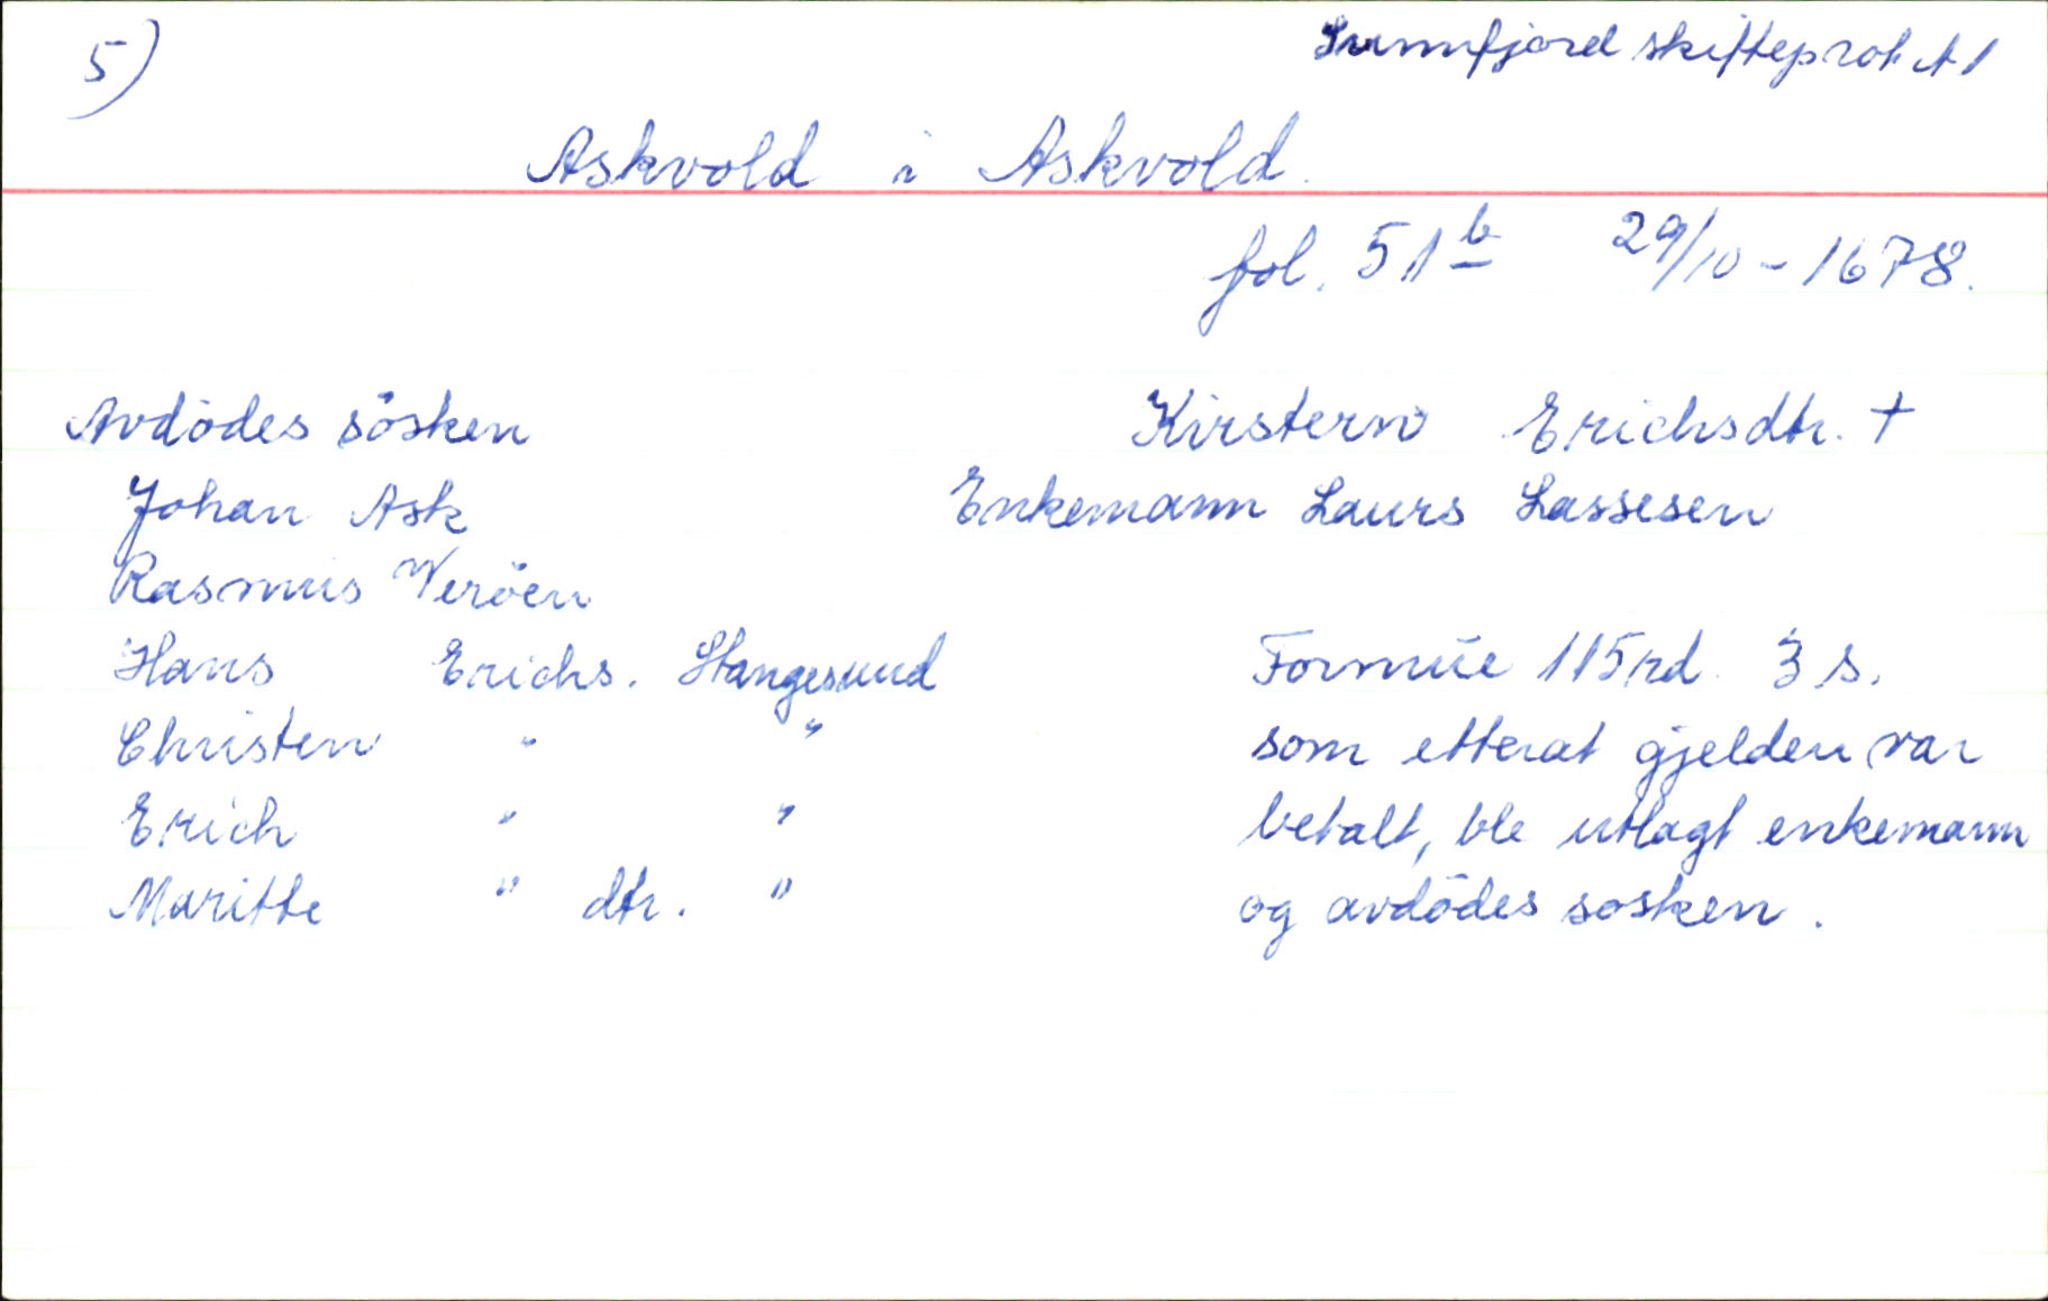 5)
Sunnfjord skifteprot A 1
Askvold i Askvold.
fol. 51b 29/10 - 1678.
Avdödes sösken
Kirstern Erichsdtr. +
Johan Ask
Enkemann Laurs Lassesen
Rasmus Veröen
Hans Erichs. Stangesund
Formue 115 rd. 3 s.
Christen " "
som etterat gjelden var
Erich " "
betalt, ble utlagt enkemann
Maritte " dtr. "
og avdödes sosken.